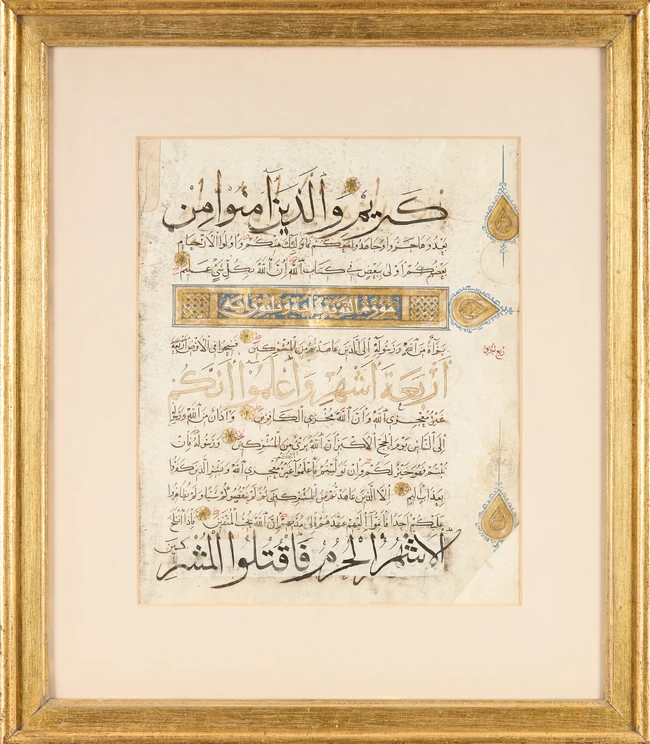 كريم والذين امنوا من
بعد وهاجروا وجاهدوا معكم فاوليك منكم واولوا الارحام
بعضهم اولى ببعض في كتاب الله ان الله بكل شي عليم
سورة التوبة ماية وتسع
براة من الله ورسوله الى الذين عاهدتم من المشركين فسيحوا في الارض اربعة
اربعة اشهر واعلموا انكم
غير معجزي الله وان الله مخزي الكافرين واذان من الله ورسوله
الى الناس يوم الحج الاكبر ان الله بري من المشركين ورسوله فان
تبتم فهو خير لكم وان توليتم فاعلموا انكم غير معجزي الله وبشر الذين كفروا
بعذاب اليم الا الذين عاهدتم من المشركين ثم لم ينقصوكم شيا ولم يظاهروا
عليكم احدا فاتموا اليهم عهدهم الى مدتهم ان الله يحب المتقين فاذا انسلخ
الاشهر الحرم فاقتلوا المشركين
ربع الحزب